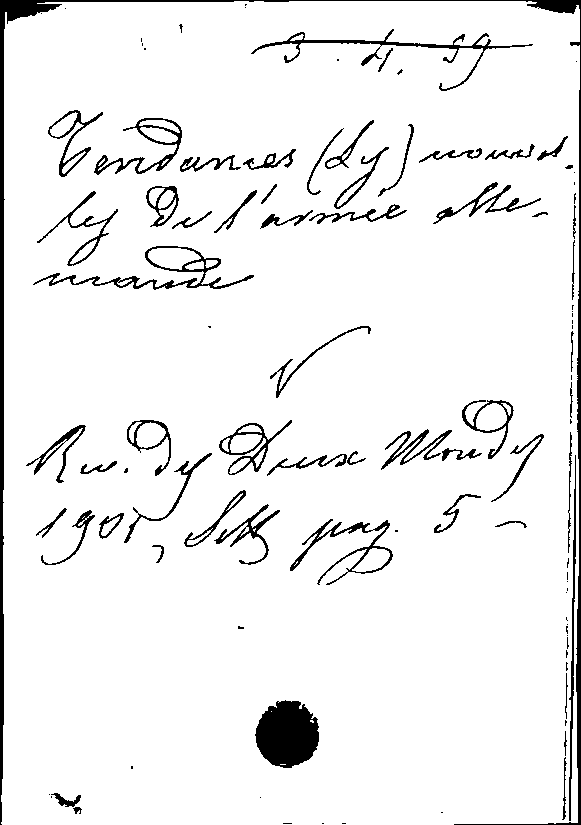 3. 4. 59
Tendances (Les) nouvel-
les de l'armée alle-
mande
V
Rev. des Deux Mondes
1901, Sett. pag. 5 -